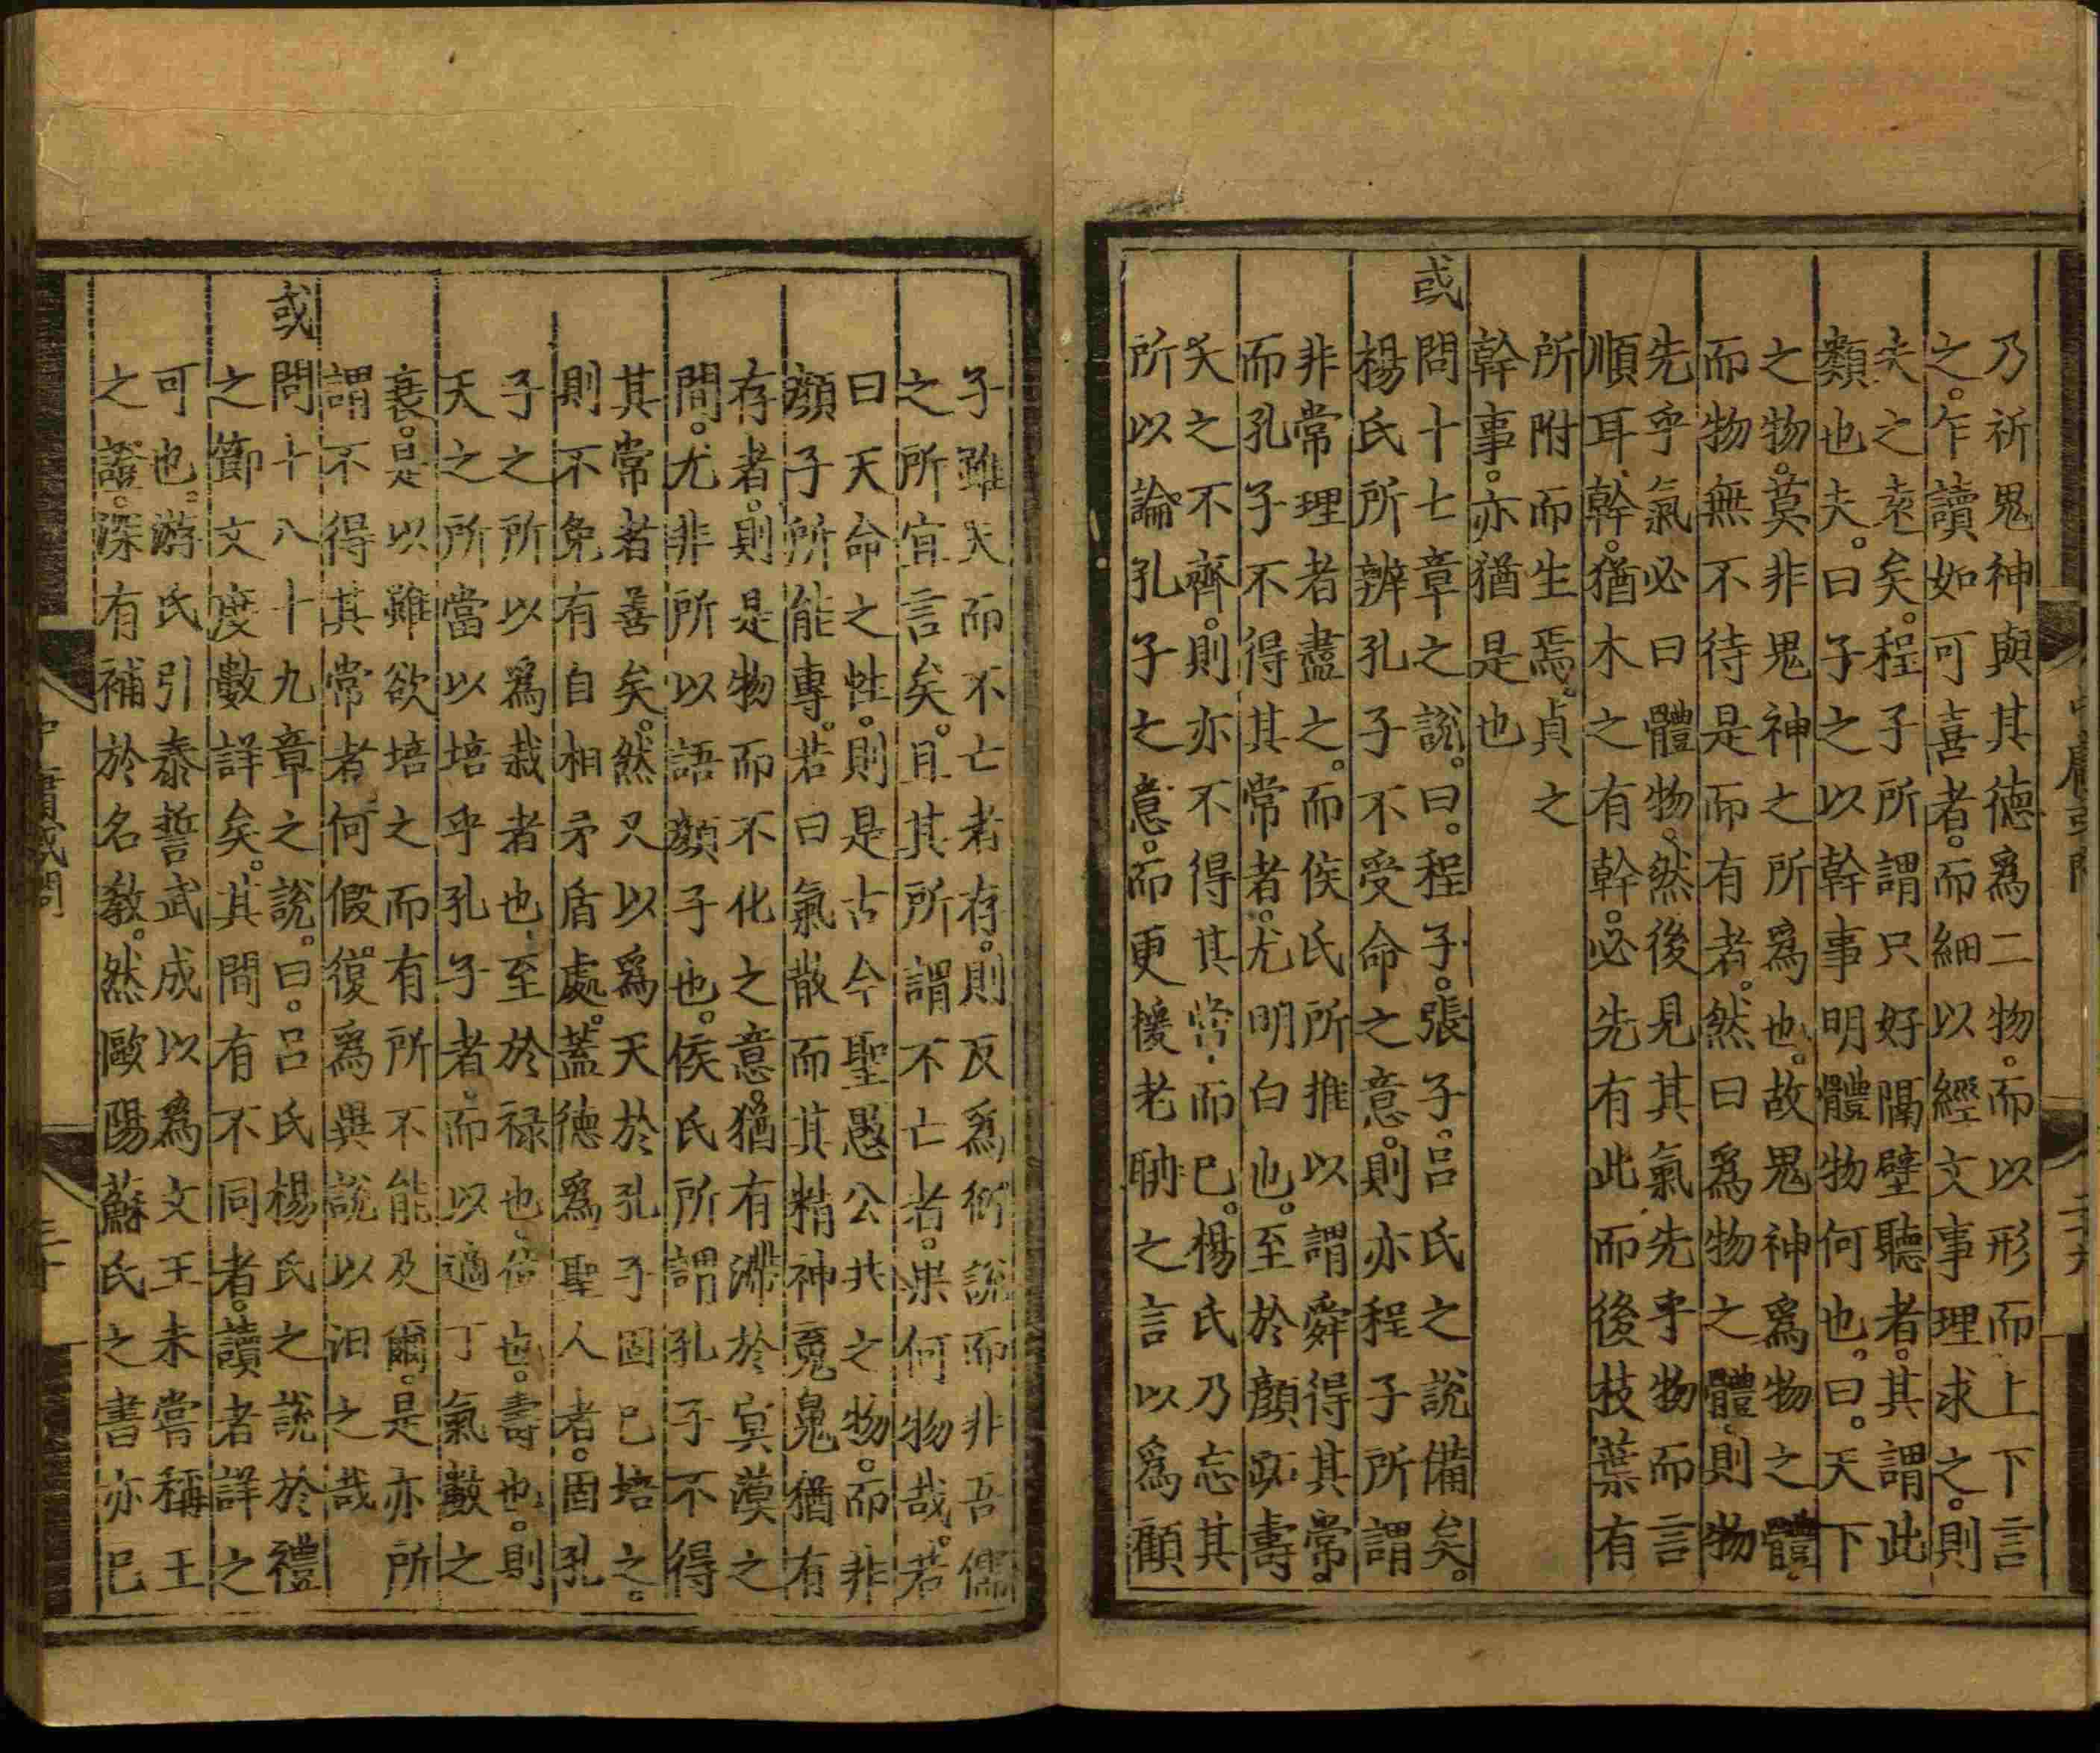 乃祈鬼神與其德爲二物。而以形而上下言
之。乍讀如可喜者。而細以經文事理求之。則
失之遠矣。程子所謂只好隔壁聽者。其謂此
類也夫。曰子之以幹事明體物何也。曰。天下
之物。莫非鬼神之所爲也。故鬼神爲物之體。
而物無不待是而有者。然曰爲物之體。則物
先乎氣必曰體物。然後見其氣先乎物而言
順耳。幹。猶木之有幹。必先有此而後枝葉有
所附而生焉。貞之
幹事。亦猶是也
或問十七章之說。曰。程子。張子。呂氏之說備矣。
楊氏所辨孔子不受命之意。則亦程子所謂
非常理者盡之。而侯氏所推以謂舜得其常。
而孔子不得其常者。尤明白也。至於顏跖壽
夭之不齊。則亦不得其常而已。楊氏乃忘其
所以論孔子之意。而更援老聃之言以爲顧
子雖夭而不亡者存。則反爲衍說而非吾儒
之所宜言矣。且其所謂不亡者。果何物哉。若
曰天命之性。則是古今聖愚公共之物。而非
顏子所能專。若曰氣散而其精神魂魄猶有
存者。則是物而不化之意。猶有滯於冥漠之
間。尤非所以語顏子也。侯氏所謂孔子不得
其常者善矣。然又以爲天於孔子固已培之。
則不免有自相矛盾處。蓋德爲聖人者。固孔
子之所以爲栽者也。至於祿也。位也。壽也。則
天之所當以培乎孔子者。而以適丁氣數之
衰。是以雖欲培之而有所不能及爾。是亦所
謂不得其常者。何假復爲異說以汨之哉
或問十八十九章之說。曰。呂氏楊氏之說於禮
之節文度數詳矣。其間有不同者。讀者詳之
可也。游氏引泰誓武成以爲文王未嘗稱王
之證。深有補於名敎。然歐陽蘇氏之書亦已
中庸或問
三十